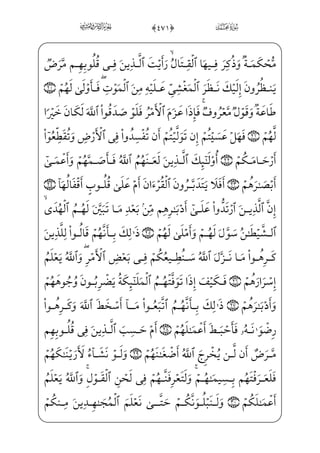 سورة محمد ﴿٤٧١﴾
مُّحْكَمَةٌ وَذُكِرَ فِيهَا ٱلْقِتَالُ ۙ رَأَيْتَ ٱلَّذِينَ فِى قُلُوبِهِم مَّرَضٌ
يَنظُرُونَ إِلَيْكَ نَظَرَ ٱلْمَغْشِىِّ عَلَيْهِ مِنَ ٱلْمَوْتِ ۖ فَأَوْلَىٰ لَهُمْ ٢٠
طَاعَةٌ وَقَوْلٌ مَّعْرُوفٌ ۚ فَإِذَا عَزَمَ ٱلْأَمْرُ فَلَوْ صَدَقُوا۟ ٱللَّهَ لَكَانَ خَيْرًا
لَّهُمْ ٢١ فَهَلْ عَسَيْتُمْ إِن تَوَلَّيْتُمْ أَن تُفْسِدُوا۟ فِى ٱلْأَرْضِ وَتُقَطِّعُوٓا۟
أَرْحَامَكُمْ ٢٢ أُو۟لَٰٓئِكَ ٱلَّذِينَ لَعَنَهُمُ ٱللَّهُ فَأَصَمَّهُمْ وَأَعْمَىٰٓ
أَبْصَٰرَهُمْ ٢٣ أَفَلَا يَتَدَبَّرُونَ ٱلْقُرْءَانَ أَمْ عَلَىٰ قُلُوبٍ أَقْفَالُهَآ ٢٤
إِنَّ ٱلَّذِينَ ٱرْتَدُّوا۟ عَلَىٰٓ أَدْبَٰرِهِم مِّنۢ بَعْدِ مَا تَبَيَّنَ لَهُمُ ٱلْهُدَى ۙ
ٱلشَّيْطَٰنُ سَوَّلَ لَهُمْ وَأَمْلَىٰ لَهُمْ ٢٥ ذَٰلِكَ بِأَنَّهُمْ قَالُوا۟ لِلَّذِينَ
كَرِهُوا۟ مَا نَزَّلَ ٱللَّهُ سَنُطِيعُكُمْ فِى بَعْضِ ٱلْأَمْرِ ۖ وَٱللَّهُ يَعْلَمُ
إِسْرَارَهُمْ ٢٦ فَكَيْفَ إِذَا تَوَفَّتْهُمُ ٱلْمَلَٰٓئِكَةُ يَضْرِبُونَ وُجُوهَهُمْ
وَأَدْبَٰرَهُمْ ٢٧ ذَٰلِكَ بِأَنَّهُمُ ٱتَّبَعُوا۟ مَآ أَسْخَطَ ٱللَّهَ وَكَرِهُوا۟
رِضْوَٰنَهُۥ فَأَحْبَطَ أَعْمَٰلَهُمْ ٢٨ أَمْ حَسِبَ ٱلَّذِينَ فِى قُلُوبِهِم
مَّرَضٌ أَن لَّن يُخْرِجَ ٱللَّهُ أَضْغَٰنَهُمْ ٢٩ وَلَوْ نَشَآءُ لَأَرَيْنَٰكَهُمْ
فَلَعَرَفْتَهُم بِسِيمَٰهُمْ ۚ وَلَتَعْرِفَنَّهُمْ فِى لَحْنِ ٱلْقَوْلِ ۚ وَٱللَّهُ يَعْلَمُ
أَعْمَٰلَكُمْ ٣٠ وَلَنَبْلُوَنَّكُمْ حَتَّىٰ نَعْلَمَ ٱلْمُجَٰهِدِينَ مِنكُمْ